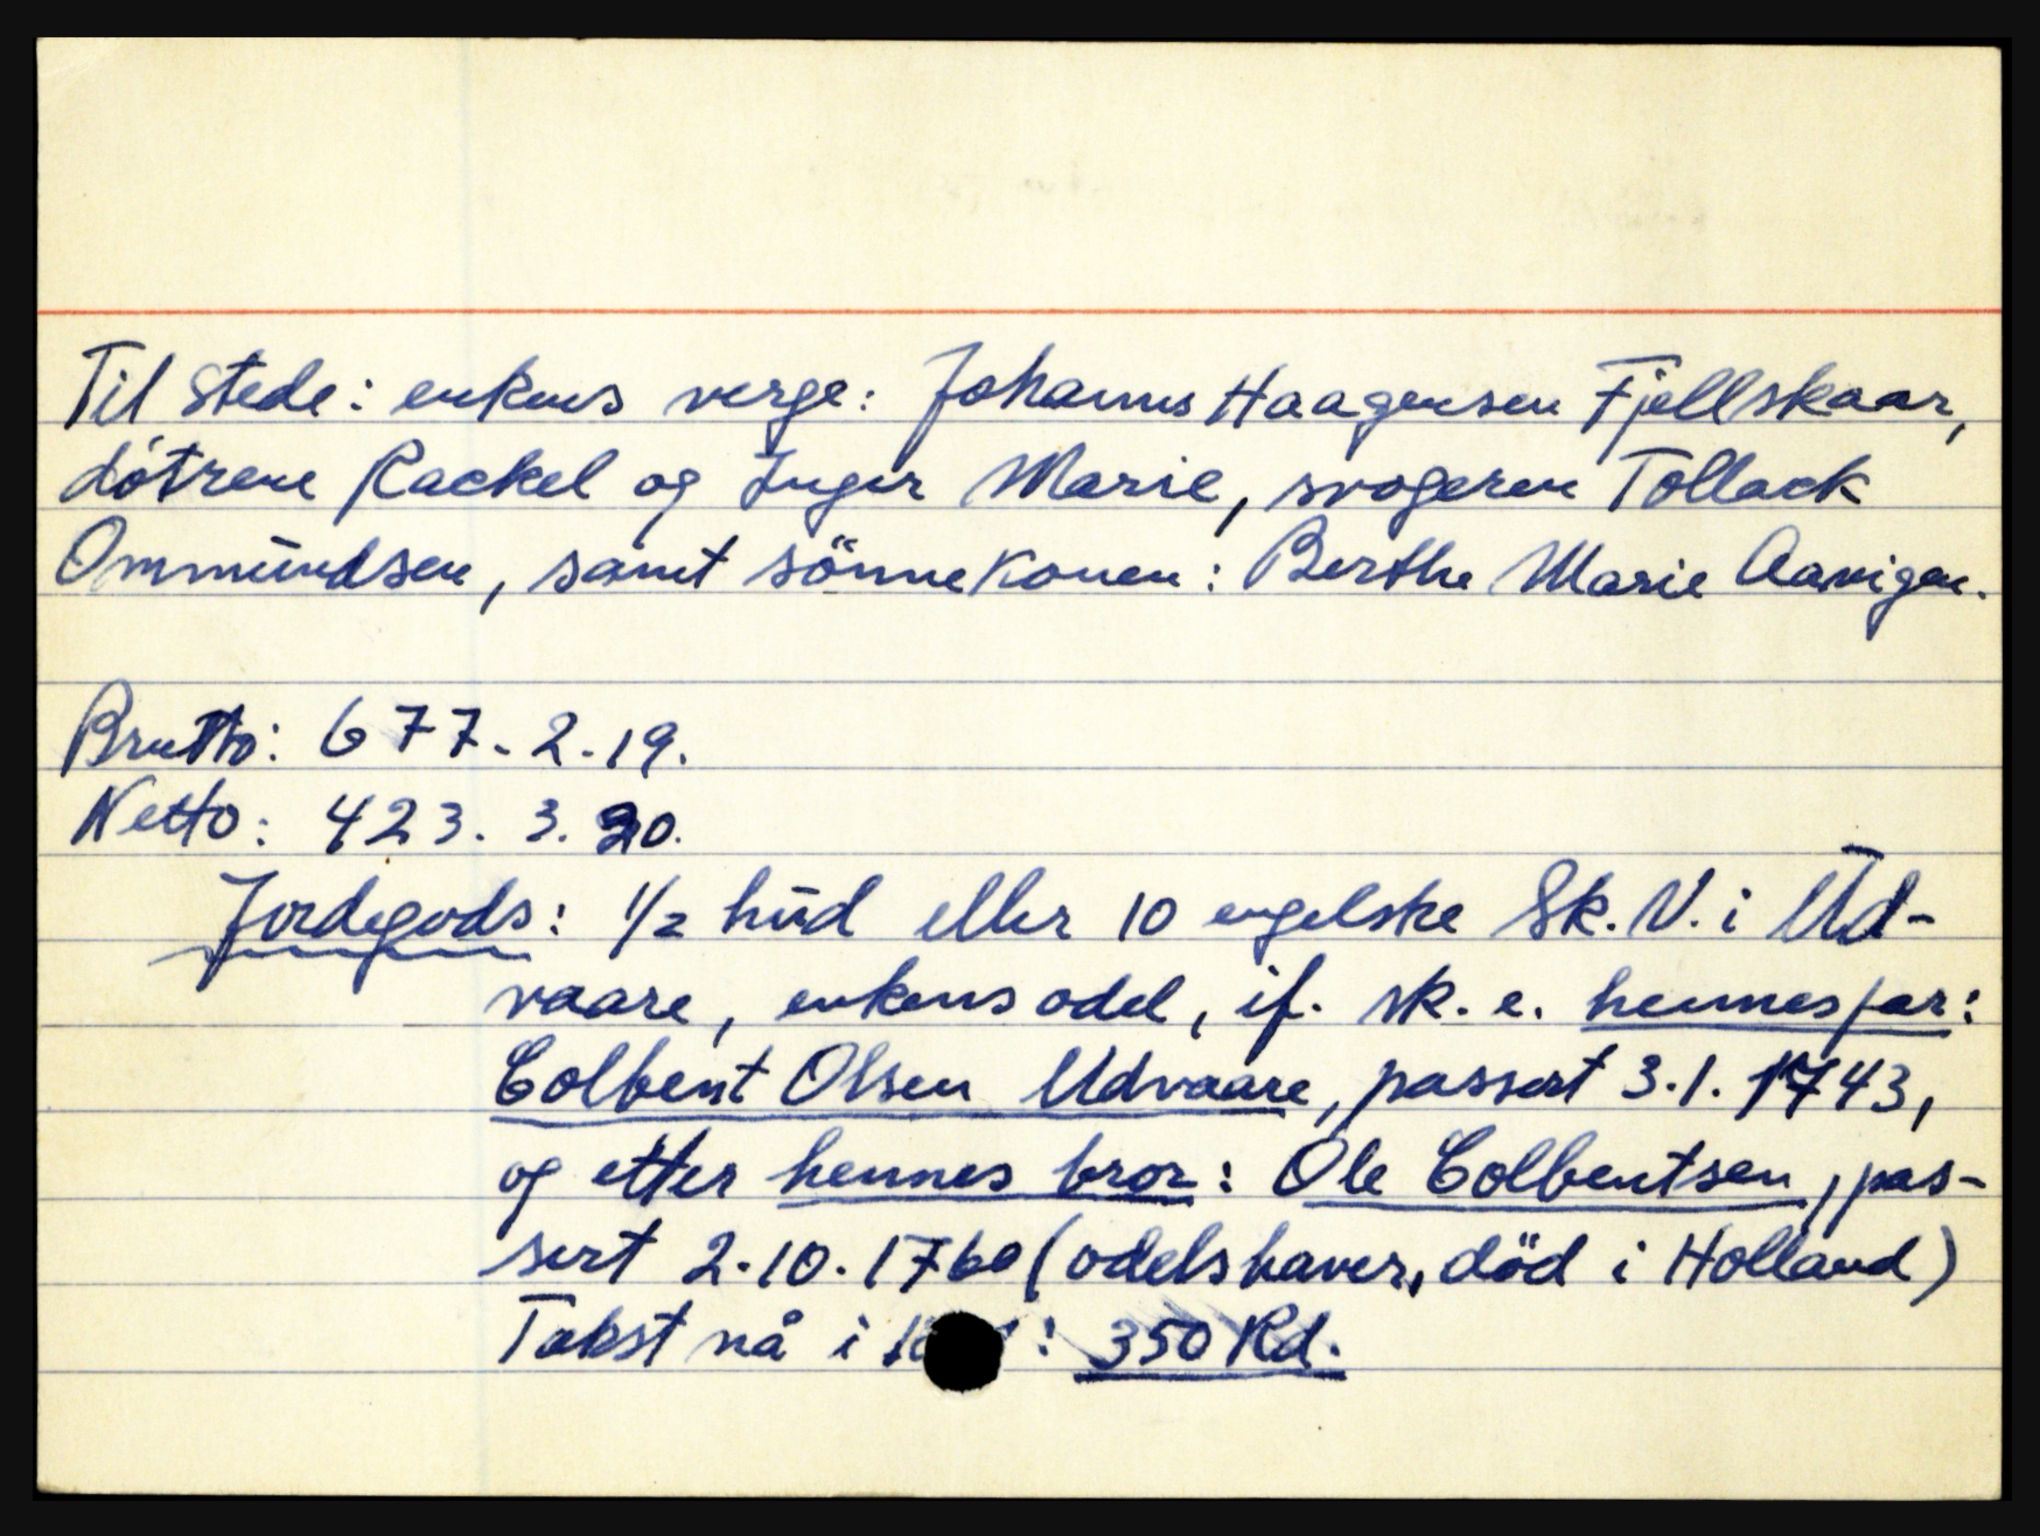 Til stede: enkens verge: Johannes Haagensen Fjellskaar,
døtrene Rackel og Inger Marie, svogeren Tollack
Ommundsen, samt sönnekonen: Berthe Marie Aavigen.
Brutto: 677-2-19.
Netto: 423. 3. 20.
Jordegods: 1/2 hud eller 10 engelske Sk. V. i Ud-
vaare, enkens odel, if. sk. e. hennes far:
Colbent Olsen Udvaare, passert 3.1. 1743,
og etter hennes bror: Ole Colbentsen, pas-
sert 2.10.1760 (odelshaver, död i Holland)
Takst nå i : 350 Rd.